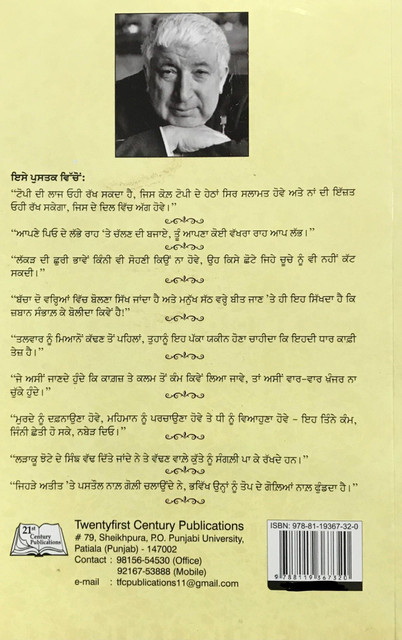 ਇਸੇ ਪੁਸਤਕ ਵਿੱਚੋਂ:
“ਟੋਪੀ ਦੀ ਲਾਜ ਓਹੀ ਰੱਖ ਸਕਦਾ ਹੈ, ਜਿਸ ਕੋਲ ਟੋਪੀ ਦੇ ਹੇਠਾਂ ਸਿਰ ਸਲਾਮਤ ਹੋਵੇ ਅਤੇ ਨਾਂ ਦੀ ਇੱਜ਼ਤ
ਓਹੀ ਰੱਖ ਸਕੇਗਾ, ਜਿਸ ਦੇ ਦਿਲ ਵਿੱਚ ਅੱਗ ਹੋਵੇ।”
“ਆਪਣੇ ਪਿਓ ਦੇ ਲੱਭੇ ਰਾਹ ’ਤੇ ਚੱਲਣ ਦੀ ਬਜਾਏ, ਤੂੰ ਆਪਣਾ ਕੋਈ ਵੱਖਰਾ ਰਾਹ ਆਪ ਲੱਭ।”
“ਲੱਕੜ ਦੀ ਛੁਰੀ ਭਾਵੇਂ ਕਿੰਨੀ ਵੀ ਸੋਹਣੀ ਕਿਉਂ ਨਾ ਹੋਵੇ, ਉਹ ਕਿਸੇ ਛੋਟੇ ਜਿਹੇ ਚੂਚੇ ਨੂੰ ਵੀ ਨਹੀਂ ਕੱਟ
ਸਕਦੀ।”
“ਬੱਚਾ ਦੋ ਵਰ੍ਹਿਆਂ ਵਿੱਚ ਬੋਲਣਾ ਸਿੱਖ ਜਾਂਦਾ ਹੈ ਅਤੇ ਮਨੁੱਖ ਸੱਠ ਵਰ੍ਹੇ ਬੀਤ ਜਾਣ ’ਤੇ ਹੀ ਇਹ ਸਿੱਖਦਾ ਹੈ ਕਿ
ਜ਼ਬਾਨ ਸੰਭਾਲ਼ ਕੇ ਬੋਲੀਦਾ ਕਿਵੇਂ ਹੈ!”
“ਤਲਵਾਰ ਨੂੰ ਮਿਆਨੋਂ ਕੱਢਣ ਤੋਂ ਪਹਿਲਾਂ, ਤੁਹਾਨੂੰ ਇਹ ਪੱਕਾ ਯਕੀਨ ਹੋਣਾ ਚਾਹੀਦਾ ਕਿ ਇਹਦੀ ਧਾਰ ਕਾਫ਼ੀ
ਤੇਜ਼ ਹੈ।”
“ਜੇ ਅਸੀਂ ਜਾਣਦੇ ਹੁੰਦੇ ਕਿ ਕਾਗਜ਼ ਤੇ ਕਲਮ ਤੋਂ ਕੰਮ ਕਿਵੇਂ ਲਿਆ ਜਾਵੇ, ਤਾਂ ਅਸੀਂ ਵਾਰ-ਵਾਰ ਖੰਜਰ ਨਾ
ਚੁੱਕੇ ਹੁੰਦੇ।”
“ਮੁਰਦੇ ਨੂੰ ਦਫ਼ਨਾਉਣਾ ਹੋਵੇ, ਮਹਿਮਾਨ ਨੂੰ ਪਰਚਾਉਣਾ ਹੋਵੇ ਤੇ ਧੀ ਨੂੰ ਵਿਆਹੁਣਾ ਹੋਵੇ – ਇਹ ਤਿੰਨੇ ਕੰਮ,
ਜਿੰਨੀ ਛੇਤੀ ਹੋ ਸਕੇ, ਨਬੇੜ ਦਿਓ।”
“ਲੜਾਕੂ ਝੋਟੇ ਦੇ ਸਿੰਙ ਵੱਢ ਦਿੱਤੇ ਜਾਂਦੇ ਨੇ ਤੇ ਵੱਢਣ ਵਾਲ਼ੇ ਕੁੱਤੇ ਨੂੰ ਸੰਗਲੀ ਪਾ ਕੇ ਰੱਖਦੇ ਹਨ।”
“ਜਿਹੜੇ ਅਤੀਤ ’ਤੇ ਪਸਤੌਲ ਨਾਲ਼ ਗੋਲੀ ਚਲਾਉਂਦੇ ਨੇ, ਭਵਿੱਖ ਉਨ੍ਹਾਂ ਨੂੰ ਤੋਪ ਦੇ ਗੋਲਿਆਂ ਨਾਲ਼ ਫੁੰਡਦਾ ਹੈ।”
21st
Century
Publications
Twentyfirst Century Publications
# 79, Sheikhpura, P.O. Punjabi University,
Patiala (Punjab) - 147002
Contact : 98156-54530 (Office)
92167-53888 (Mobile)
e-mail : tfcpublications11@gmail.com
ISBN: 978-81-19367-32-0
9 788119 367320